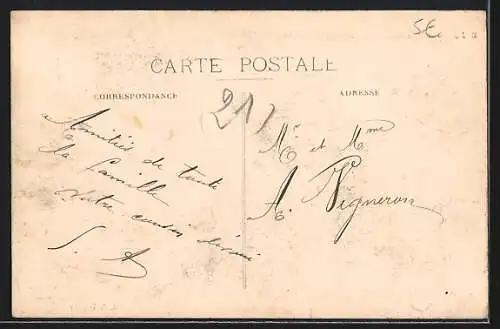 5€
CARTE POSTALE
CORRESPONDANCE
ADRESSE
211
Amitiés de toute
la famille
Votre cousin
S. A
Mr et Mme
A. Vigneron